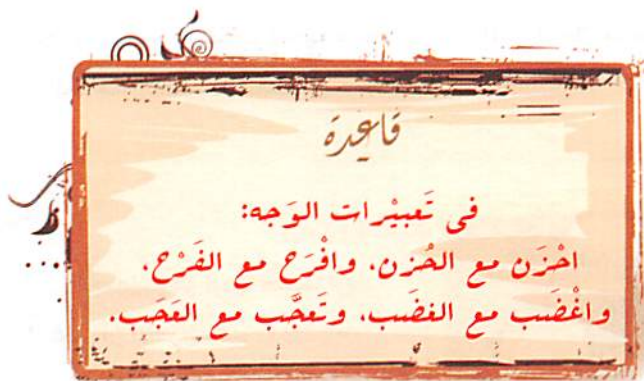 قاعدة
في تَعبيْرات الوَجه:
احْزَن مع الحُزن، وافْرَح مع الفَرْح،
واغْضَب مع الغضَب، وتَعجَّب مع العَجَب.